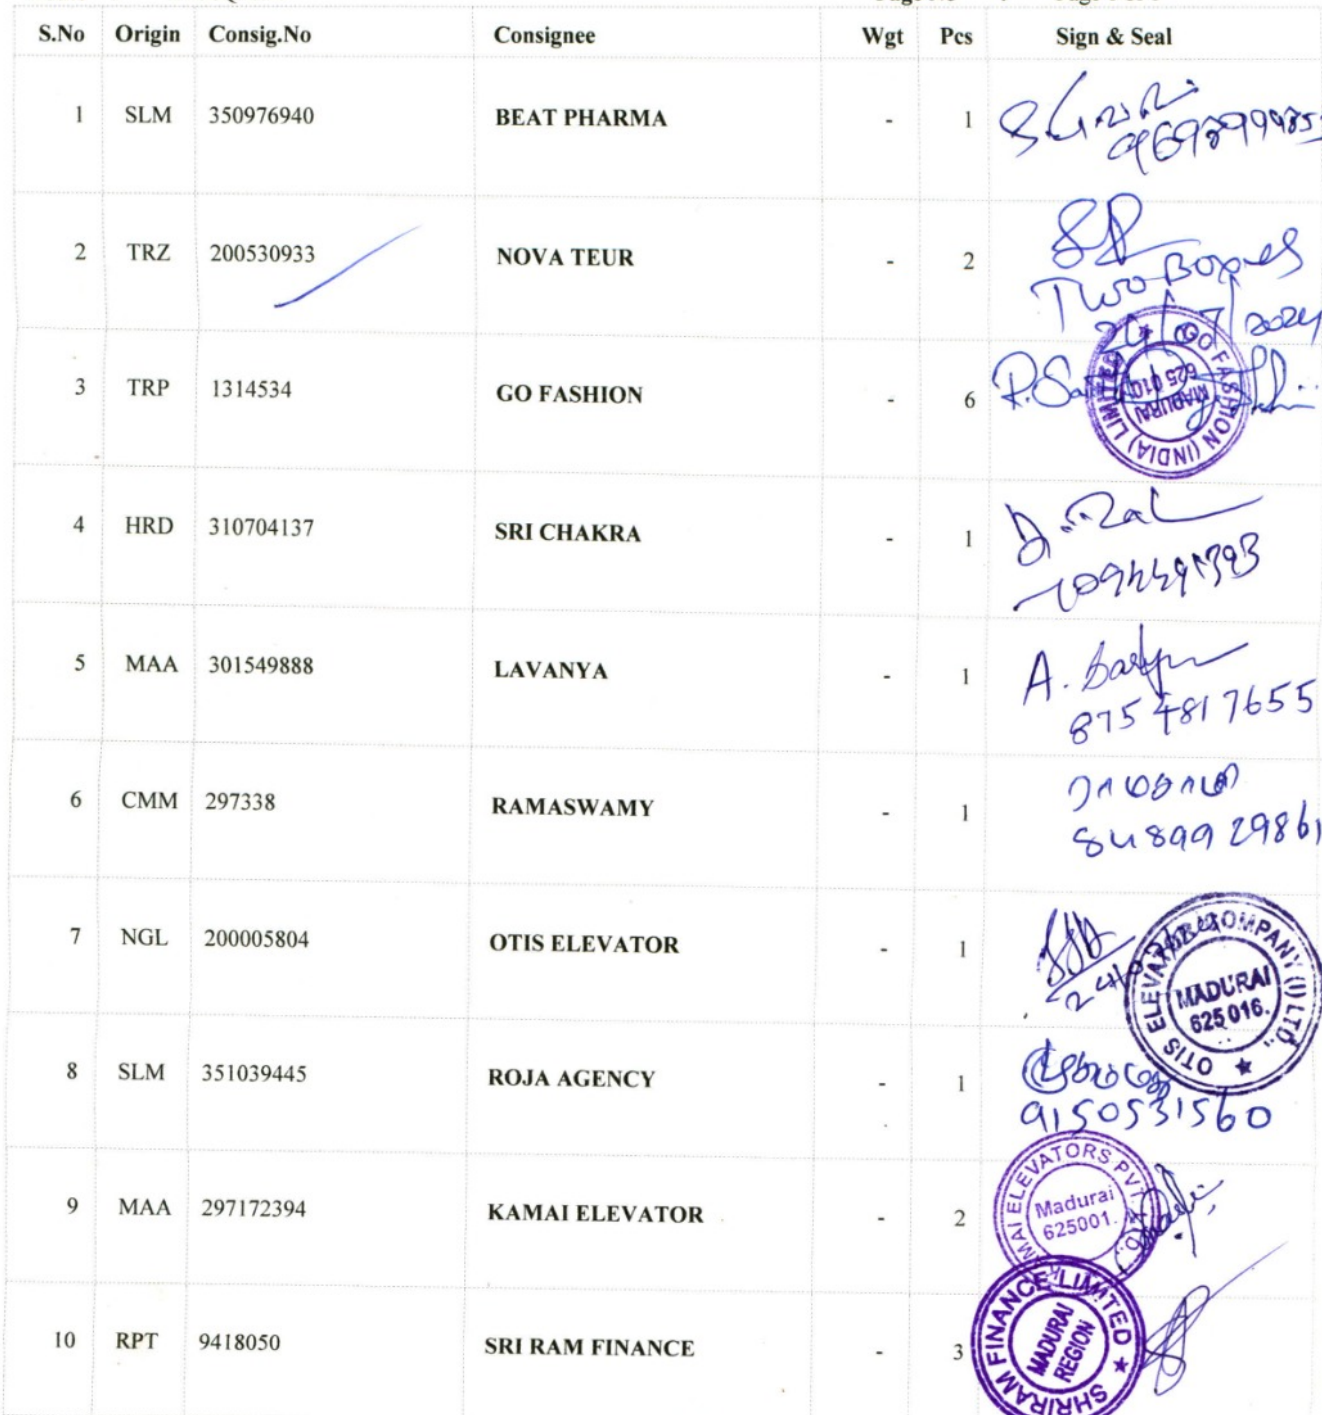 S.No Origin Consig.No Consignee Wgt Pcs Sign & Seal
1 SLM 350976940 BEAT PHARMA - 1
2 TRZ 200530933 NOVA TEUR - 2
Two Boxes
24/07/2024
3 TRP 1314534 GO FASHION - 6
GO FASHION (INDIA) LIMITED
MADURAI
625 010
4 HRD 310704137 SRI CHAKRA - 1
5 MAA 301549888 LAVANYA - 1
A.
8754817655
6 CMM 297338 RAMASWAMY - 1
8489929861
7 NGL 200005804 OTIS ELEVATOR - 1
OTIS ELEVATOR COMPANY (I) LTD.,
MADURAI
625 016.
8 SLM 351039445 ROJA AGENCY - 1
9150531560
9 MAA 297172394 KAMAI ELEVATOR - 2
MAI ELEVATORS PVT. LTD.
Madurai
625001.
10 RPT 9418050 SRI RAM FINANCE - 3
SHRIRAM FINANCE LIMITED
MADURAI
REGION